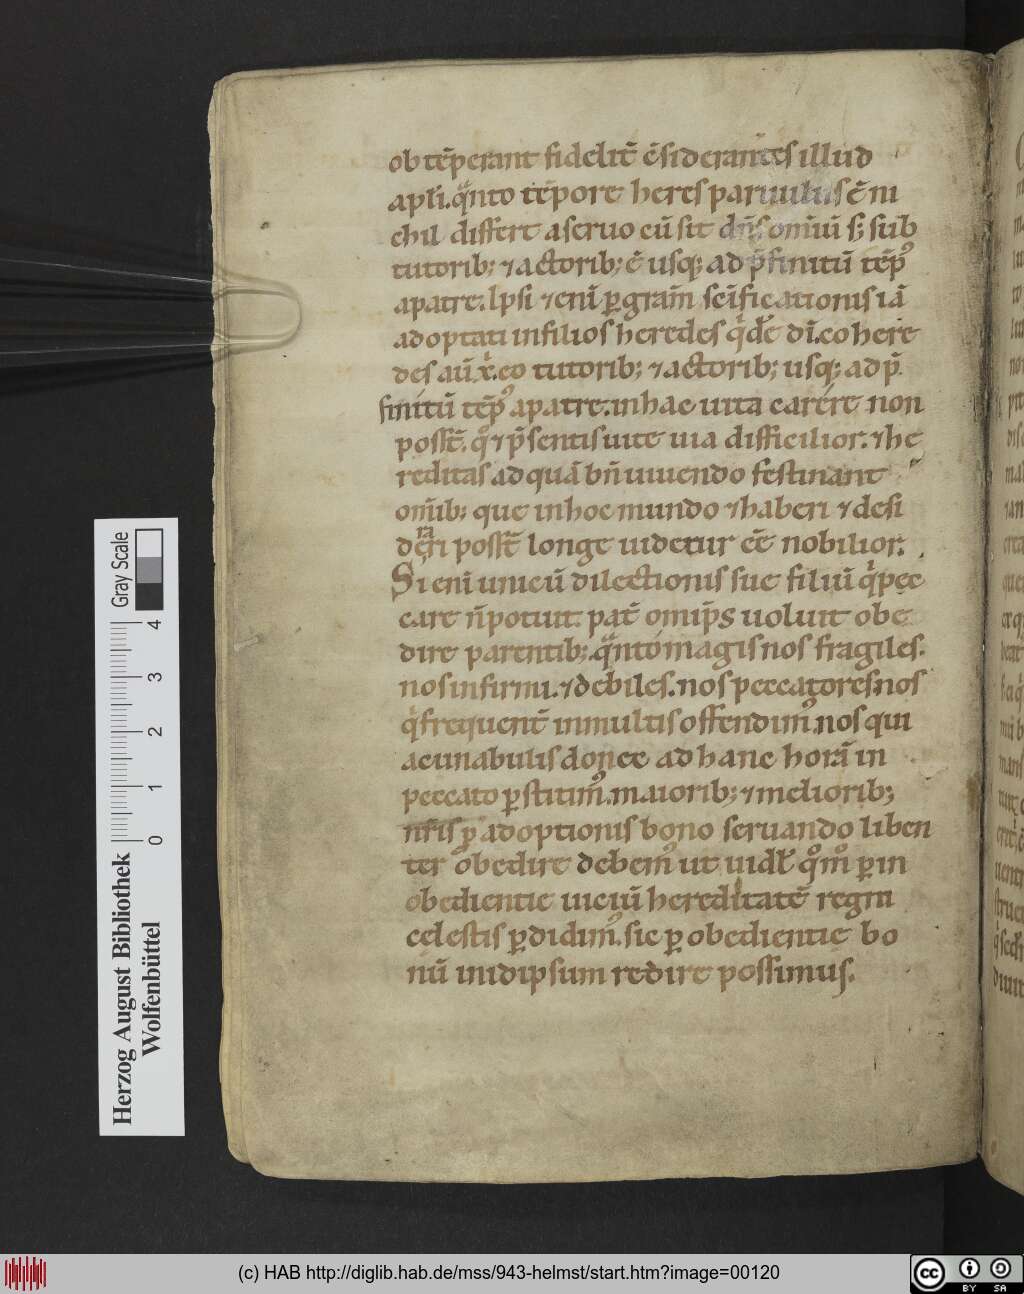 ob tēperant fidelit̄ c̄siderantes illud
apl̄i. qͣnto tēpore heres paruulus ē ni
chil differt a seruo cū sit dn̄s omniū s; sub
tutorib; ⁊ actorib; ē usq; ad p̄finitū tēpꝰ
a patre. Ipsi ⁊enī ꝑ grām sc̄ificationis iā
adoptati in filios heredes qͥdē dī. cohere
des aū. xͥ. co tutorib; ⁊ actorib; usq; ad p̄
finitū tēpꝰ a patre. in hac uita carere non
possē. qͦ ⁊ p̄sentis uite uia difficilior. ⁊ he
reditas ad quā bn̄ uiuendo festinant
om̄ib; que in hoc mundo ⁊ haberi ⁊ desi
derari possē longe uidetur cē nobilior.
Si enī unicū dilectionis sue filiū qͥ pec
care n̄ potuit. pat̄ omip̄s uoluit obe
dire parentib; qͣnto magis nos fragiles.
nos infirmi. ⁊ debiles. nos peccatores. nos
qͥ frequent̄ in multis offendimꝰ. nos qui
a cunabulis donec ad hanc horā in
peccato ꝑstitimꝰ. maiorib; ⁊ meliorib;
nr̄is ꝓ adoptionis bono seruando liben
ter obedire debemꝰ ut uidl̄ qͦmꝰ ꝑ in
obedientie uiciū hereditatē regni
celestis ꝑdidimꝰ. sic ꝑ obedientie bo
nū in idipsum redire possimus.
Herzog August Bibliothek
Wolfenbüttel
Gray Scale
0 1 2 3 4
(c) HAB http://diglib.hab.de/mss/943-helmst/start.htm?image=00120
cc BY SA